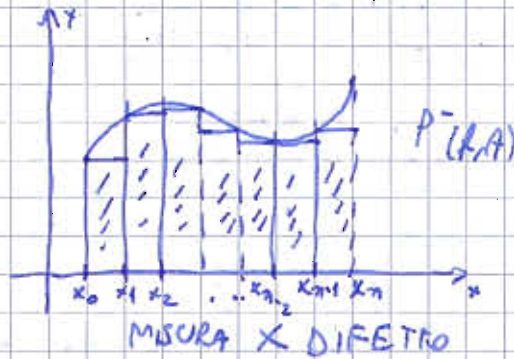 Y
P⁻(f,A)
x₀ x₁ x₂ . .. xₙ₋₂ xₙ₋₁ xₙ x
MISURA X DIFETTO